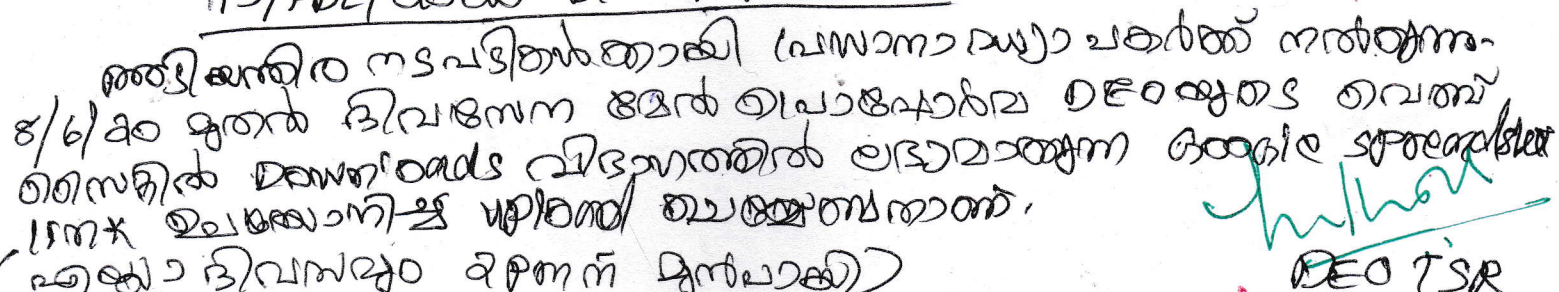 അടിയന്തിര നടപടികൾക്കായി പ്രധാനാദ്ധ്യാപകർക്ക് നൽകുന്നു.
8/6/20 മുതൽ ദിവസേന മേൽ പ്രൊഫോർമ DEO യുടെ വെബ്
സൈറ്റിൽ Downloads വിഭാഗത്തിൽ ലഭ്യമാകുന്ന Google spreadsheet
link ഉപയോഗിച്ച് upload ചെയ്യേണ്ടതാണ്.
എല്ലാ ദിവസവും 2 pm ന് മുൻപായി)
DEO TSR